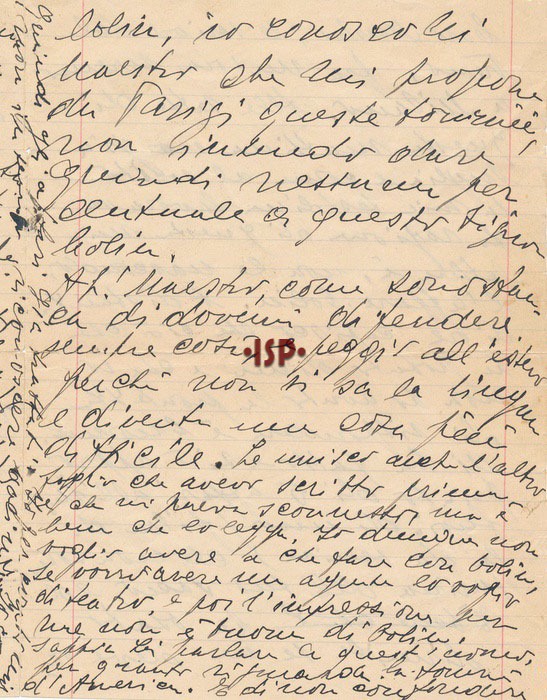 bolin, io conosco lei
Maestro che mi propone
da Parigi queste tournée,
non intendo dare
quindi nessuna per
centuale a questo Signor
bolin.
Ah! Maestro, come sono stan
ca di dovermi difendere
sempre così e peggio all'estero
perché non si sa la lingua
e diventa una cosa più
difficile. Le unisco anche l'altro
foglio che avevo scritto prima
e che mi pareva sconnesso, ma è
bene che lo legga. Io dunque non
voglio avere a che fare con bolin,
se vorrò avere un agente lo voglio
di teatro, e poi l'impressione per
me non è buona di bolin,
sappia Lei parlare a quest'uomo,
per quanto riguarda la tournée
d'America. E di non
Quindi gli affari già trattati
ISP